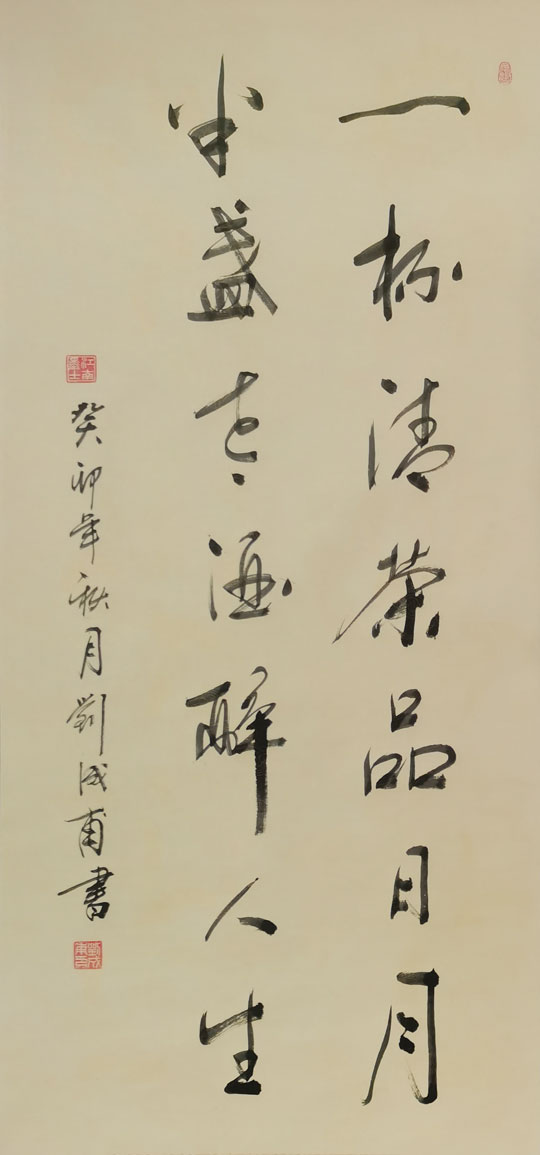 一杯清茶品日月
半盏老酒醉人生
癸卯年秋月劉成甫書